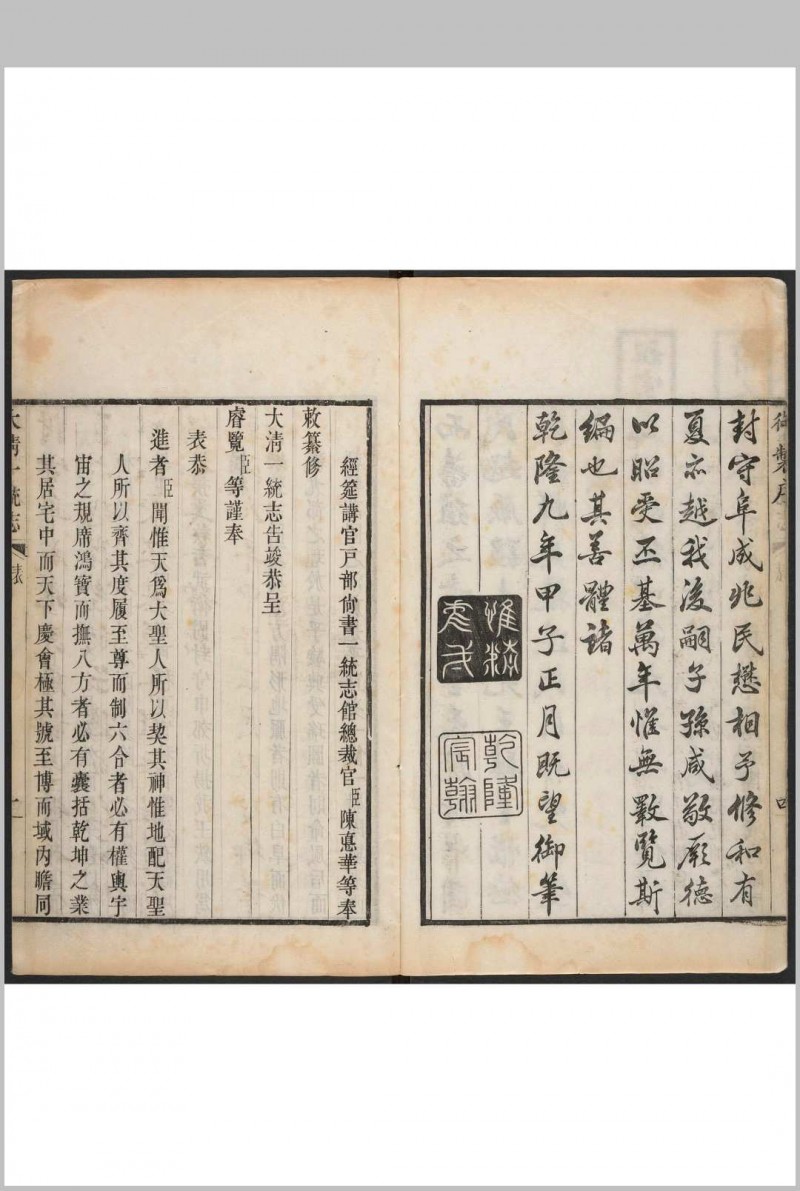 御製序
封守阜成兆民懋相予修和有
夏亦越我後嗣子孫咸敬厥德
以昭受丕基萬年惟無斁覽斯
編也其善體諸
乾隆九年甲子正月既望御筆
惟精
乾隆
宸翰
四
經筵講官戶部尚書一統志館總裁官臣陳悳華等奉
敕纂修
大清一統志告竣恭呈
睿覽臣等謹奉
表恭
進者臣聞惟天爲大聖人所以契其神惟地配天聖
人所以齊其度履至尊而制六合者必有權輿宇
宙之規席鴻寶而撫八方者必有囊括乾坤之業
其居宅中而天下慶會極其號至博而域內瞻同
大清一統志
表
一